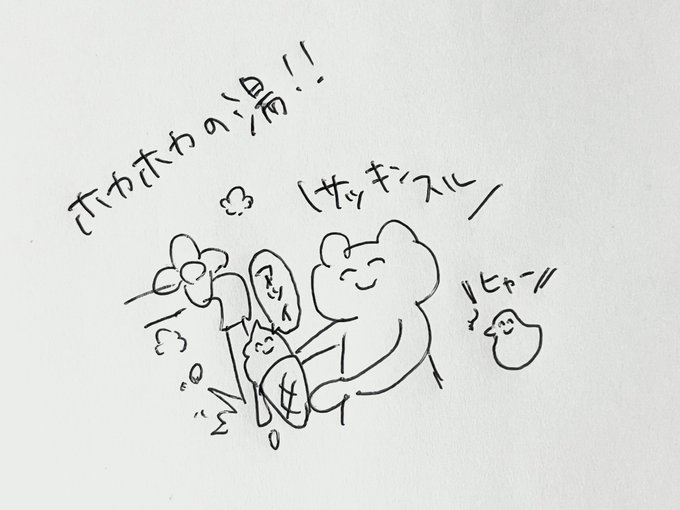 ホカホカの湯!!
サッキンスル
アツイ
ヒャー